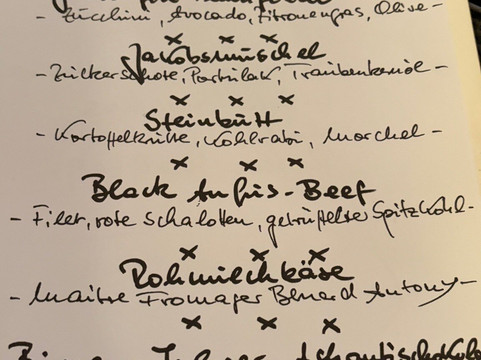 - Zucchini, Avocado, Zitronengras, Olive -
x x x
Jakobsmuschel
- Zuckerschote, Portulak, Traubenkernöl -
x x x
Steinbutt
- Kartoffelkruste, Kohlrabi, Morchel -
x x x
Black Angus-Beef
- Filet, rote Schalotten, getrüffelter Spitzkohl -
x x x
Rohmilchkäse
- Maître Fromager Bernard Antony -
x x x